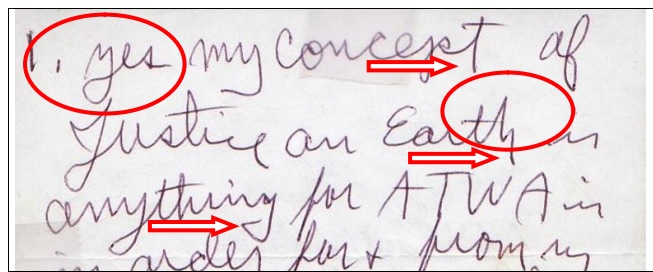 1. yes my Concept of
Justice an Earth is
anything for ATWA in
in order for